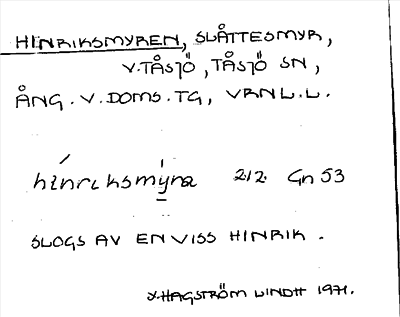 HINRIKSMYREN, SLÅTTESMYR,
V. TÅSJÖ, TÅSJÖ SN,
ÅNG. V. DOMS. TG, VRNL. L.
hínrıksmy̱ra 2/2 Gn 53
SLOGS AV EN VISS HINRIK.
HAGSTRÖM LINDH 1971.